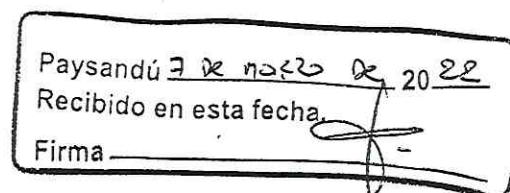 Paysandú 7 de marzo de 2022
Recibido en esta fecha.
Firma